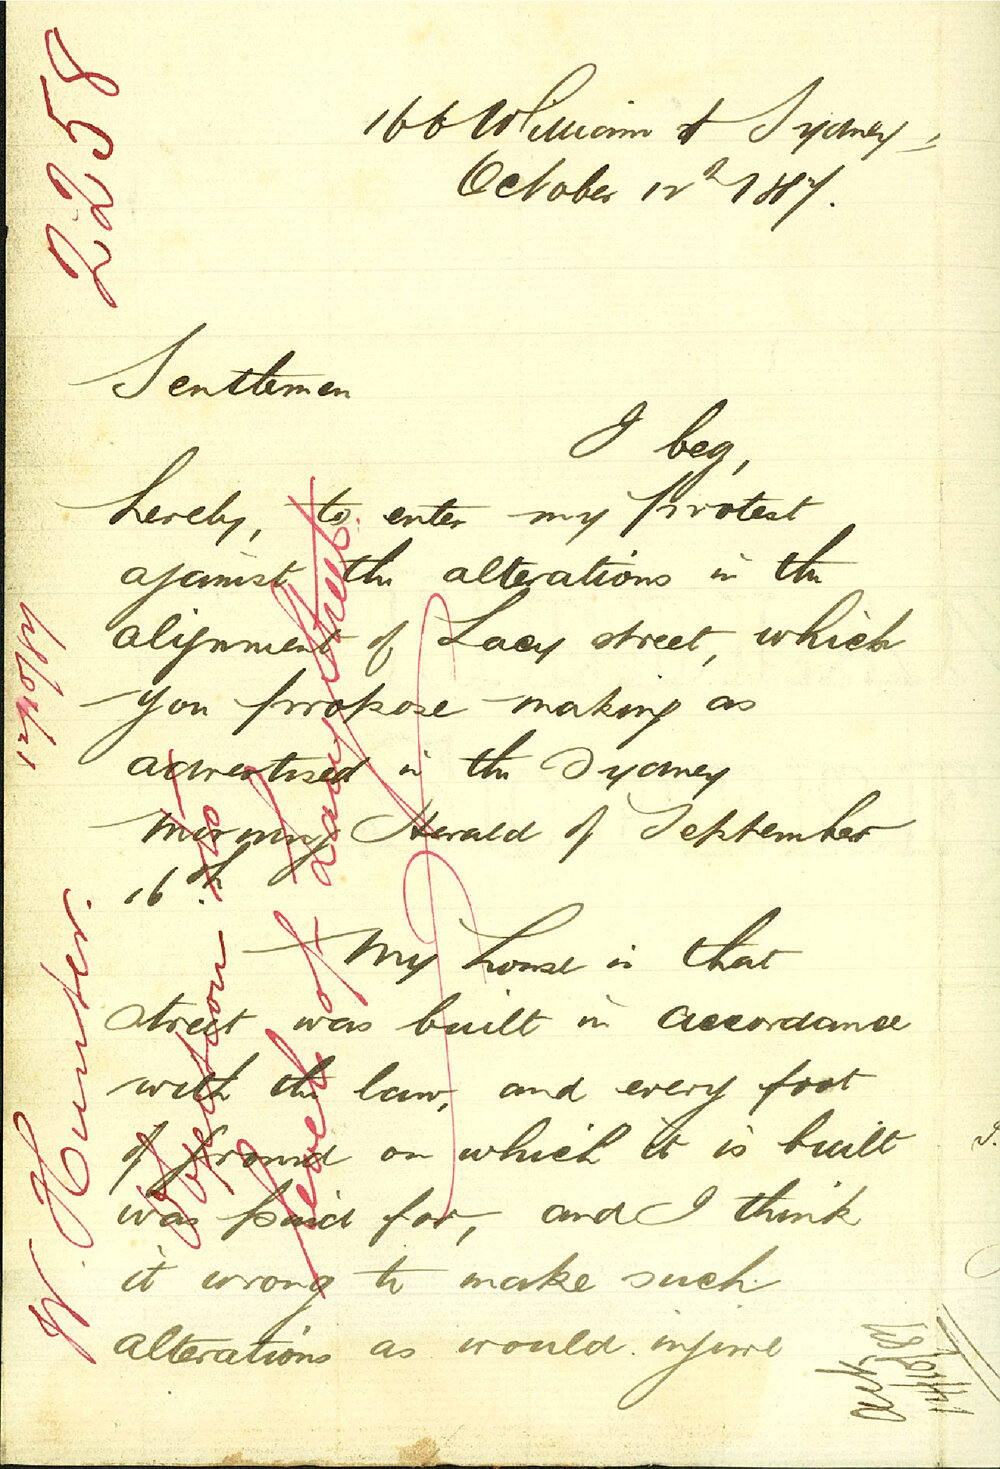 166 William St Sydney
October 12th 1887.
Gentlemen
I beg,
hereby, to enter my protest
against the alterations in the
alignment of Lacy street, which
you propose making as
advertised in the Sydney
Morning Herald of September
16th.
My house in that
street was built in accordance
with the law, and every foot
of ground on which it is built
was paid for, and I think
it wrong to make such
alterations as would injure
2258
12/10/87
W. Hunter.
Objection to
level of Lacy Street.